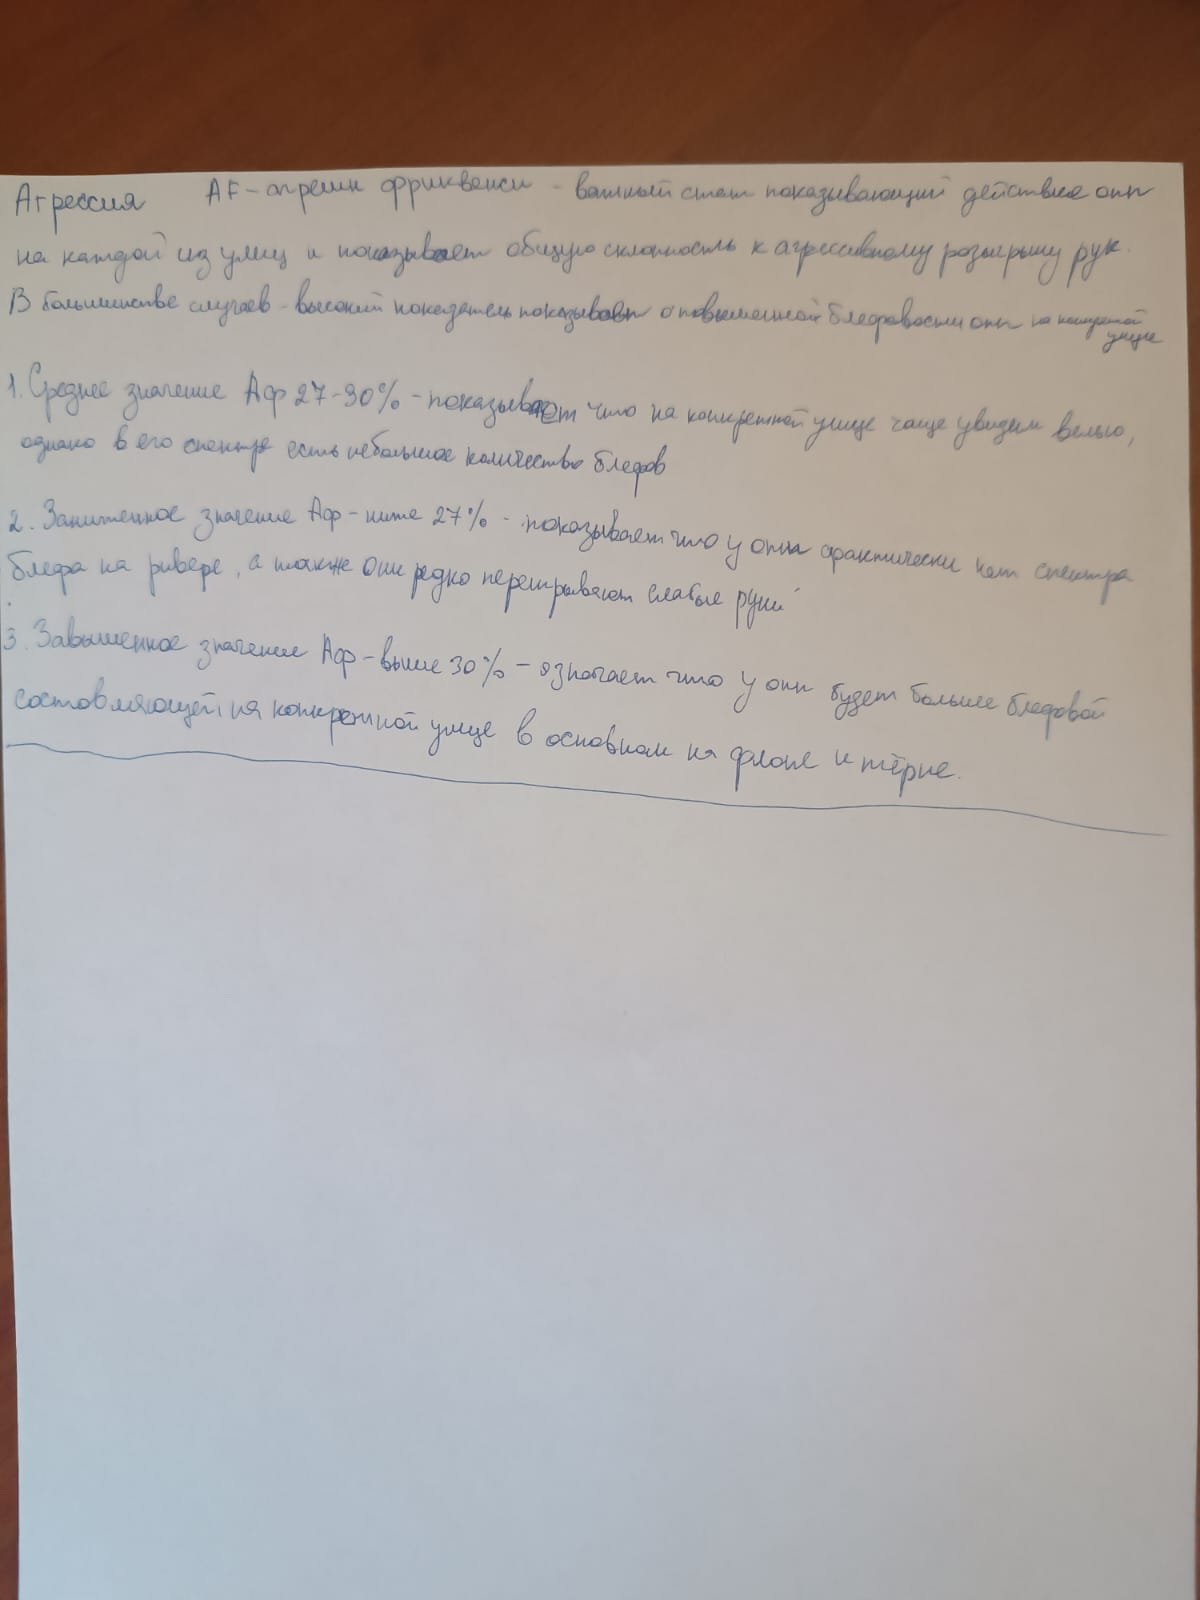 Агрессия AF - агрешн фриквенси - важный стат показывающий действия опп
на каждой из улиц и показывает общую склонность к агрессивному розыгрышу рук.
В большинстве случаев - высокий показатель показывает о повышенной блефовости опп на конкретной
улице
1. Среднее значение Аф 27-30% - показывает что на конкретной улице чаще увидим велью,
однако в его спектре есть небольшое количество блефов
2. Заниженное значение Аф - ниже 27% - показывает что у оппа фрактически нет спектра
блефа на ривере, а также они редко переигрывают слабые руки
3. Завышенное значение Аф - выше 30% - означает что у опп будет больше блефовой
составляющей на конкретной улице в основном на флопе и тёрне.